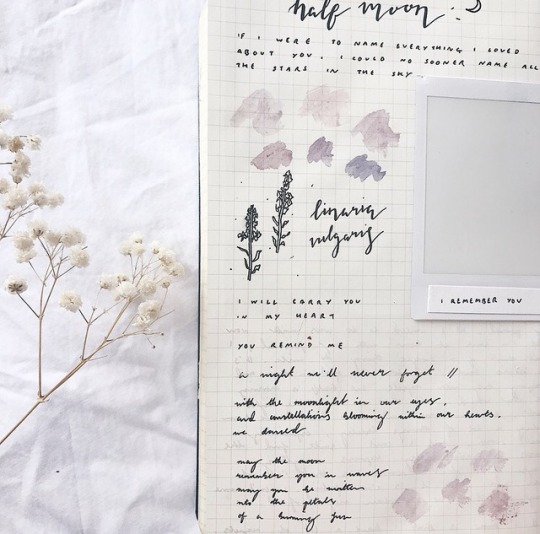 half moon :
IF I WERE TO NAME EVERYTHING I LOVED
ABOUT YOU, I COULD NO SOONER NAME ALL
THE STARS IN THE SKY
linaria
vulgaris
I REMEMBER YOU
I WILL CARRY YOU
IN MY HEART
YOU REMIND ME
a night we'll never forget //
with the moonlight in our eyes,
and constellations blooming within our hearts.
we danced
may the moon
remember you in waves
may you be written
into the petals
of a burning